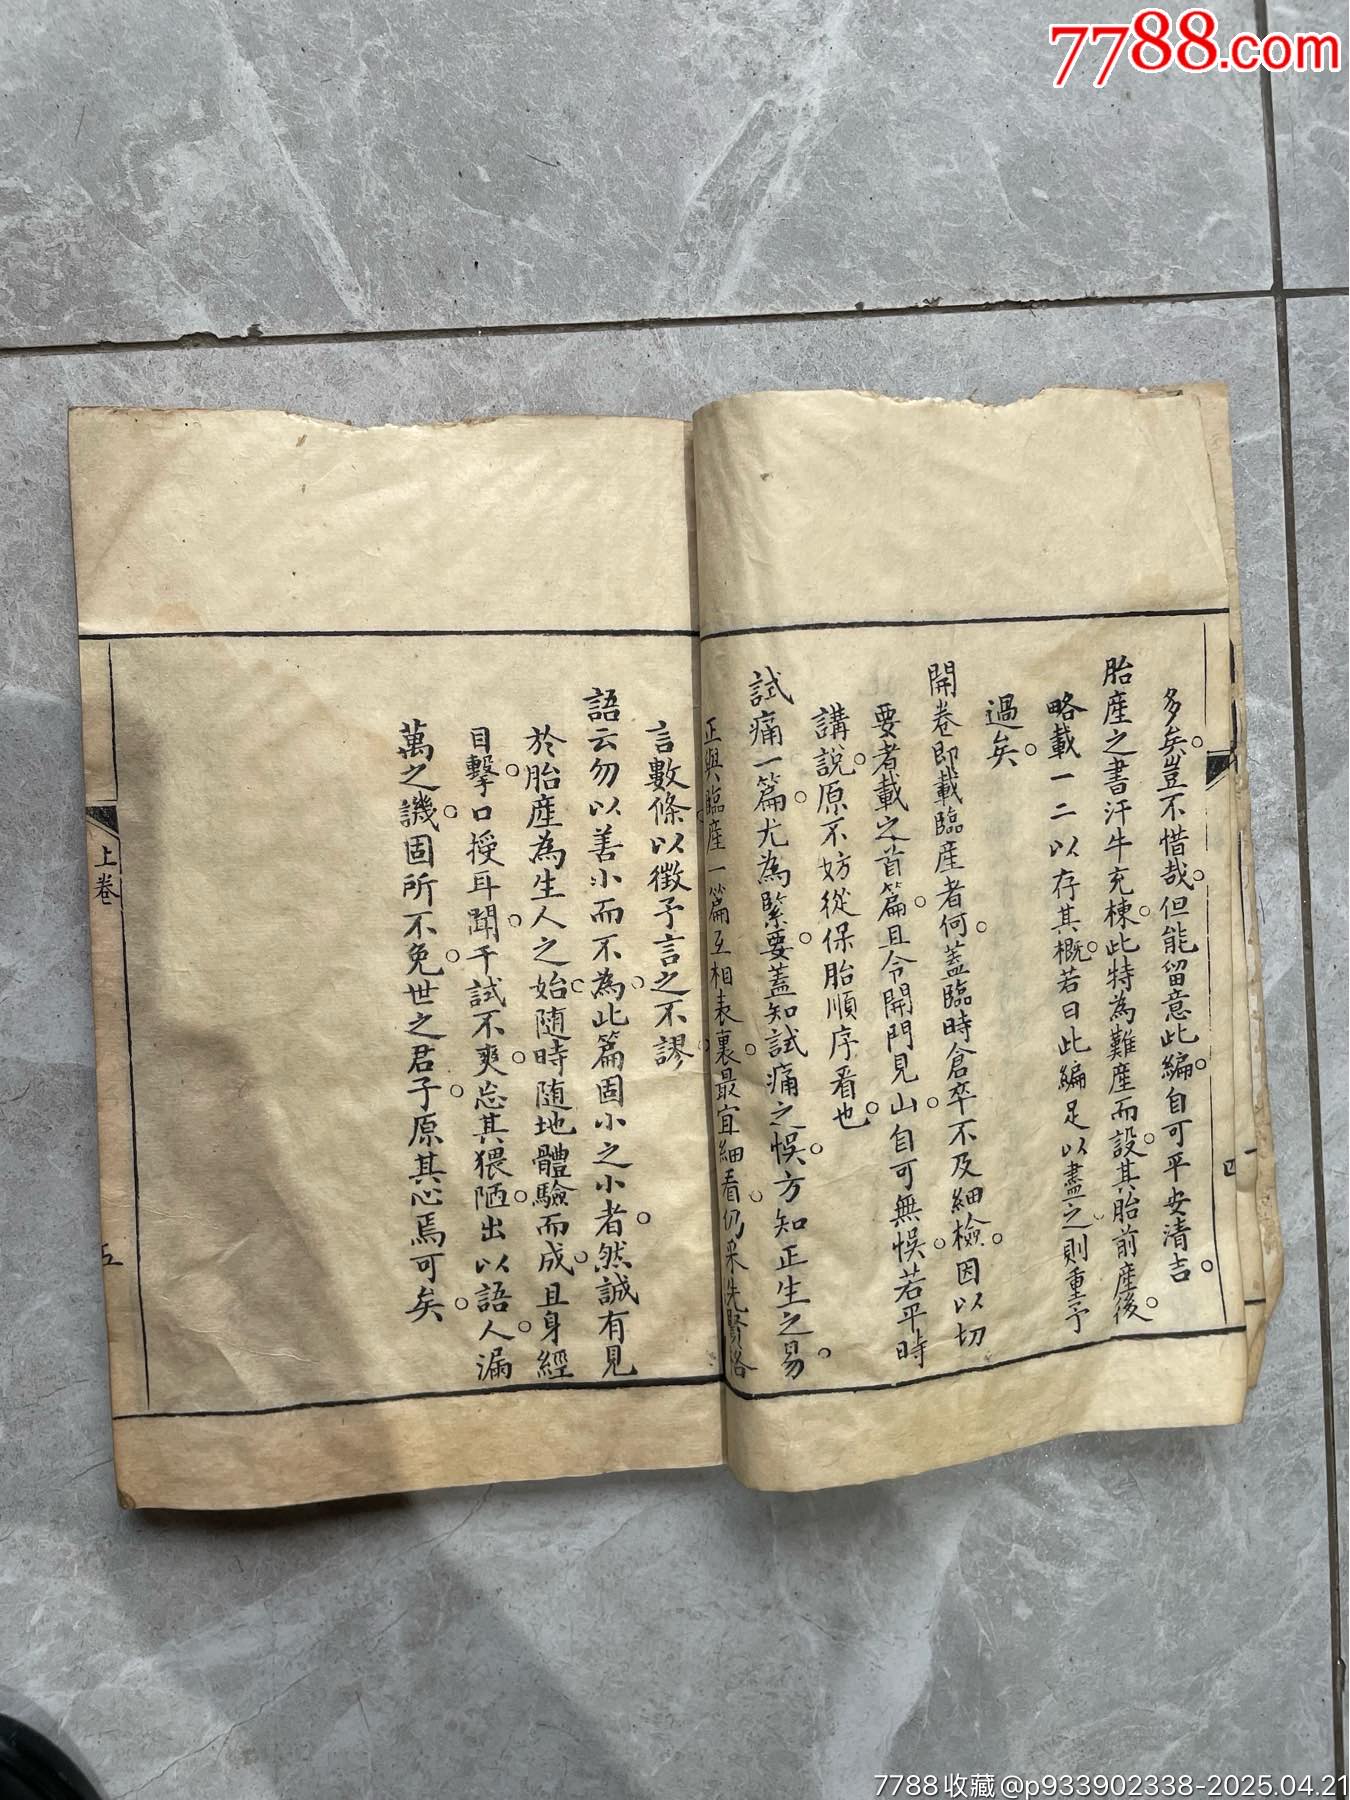 7788.com
多矣。豈不惜哉。但能留意此編。自可平安清吉。
胎產之書汗牛充棟。此特為難產而設。其胎前產後。
略載一二以存其概。若曰此編足以盡之則重予
過矣。
開卷即載臨產者何。蓋臨時倉卒不及細檢。因以切
要者載之首篇。且令開門見山。自可無悞。若平時
講說。原不妨從保胎順序看也。
試痛一篇。尤為緊要。蓋知試痛之悞。方知正生之易。
正與臨產一篇互相表裏。最宜細看。仍采先賢格
言數條。以徵予言之不謬。
語云勿以善小而不為。此篇固小之小者。然誠有見
於胎產為生人之始。隨時隨地體驗而成。且身經
目擊。口授耳聞。千試不爽。忘其猥陋。出以語人。漏
萬之譏。固所不免。世之君子。原其心焉可矣。
上卷
五
四
7788收藏@p933902338-2025.04.21